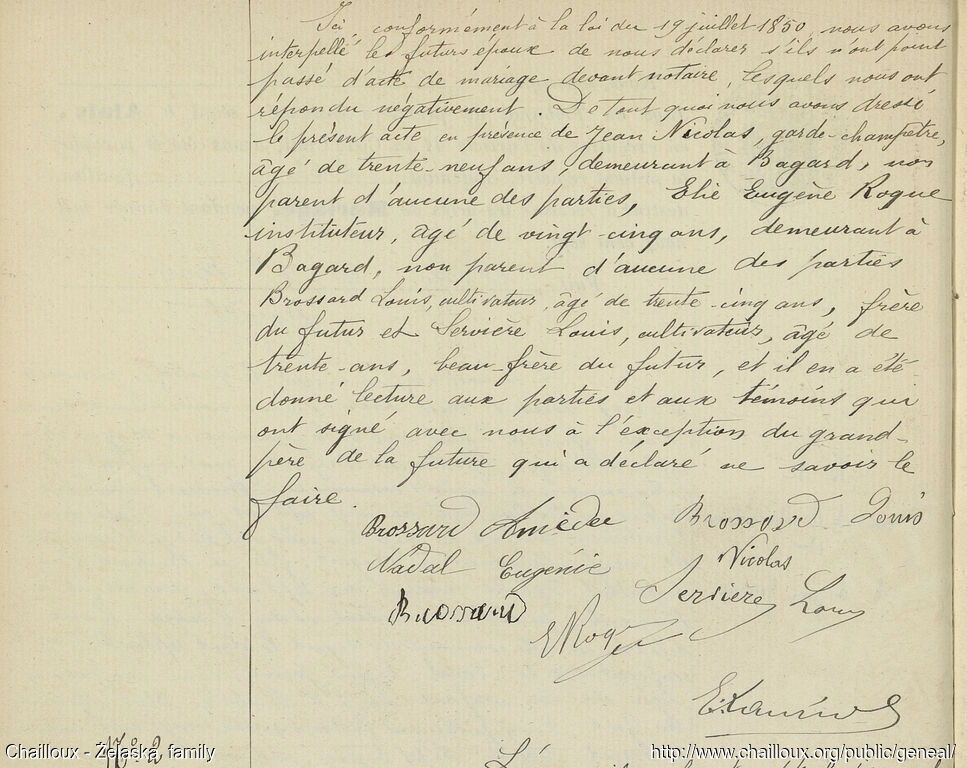 Ici, conformément à la loi du 19 juillet 1850, nous avons
interpellé les futurs époux de nous déclarer s'ils n'ont point
passé d'acte de mariage devant notaire, lesquels nous ont
répondu négativement. De tout quoi nous avons dressé
le présent acte en présence de Jean Nicolas, garde-champêtre,
âgé de trente-neuf ans, demeurant à Bagard, non
parent d'aucune des parties, Elie Eugène Rogue
instituteur, âgé de vingt cinq ans, demeurant à
Bagard, non parent d'aucune des parties
Brossard Louis, cultivateur, âgé de trente-cinq ans, frère
du futur et Servière Louis, cultivateur, âgé de
trente-ans, beau-frère du futur, et il en a été
donné lecture aux parties et aux témoins qui
ont signé avec nous à l'éxception du grand-
père de la future qui a déclaré ne savoir le
faire.
Brossard Amédée Brossard Louis
Nadal Eugénie Nicolas
Brossard Servière Louis
N° 2
Chailloux - Zelaska family http://www.chailloux.org/public/geneal/